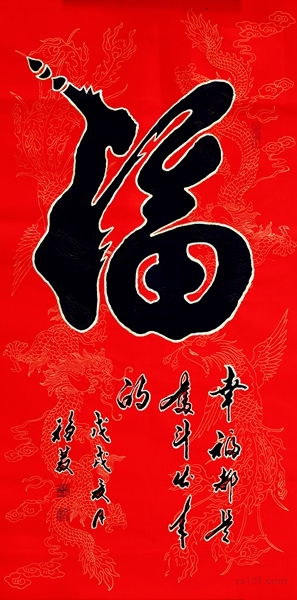 福
幸福都是
奋斗出来
的
戊戌夏月